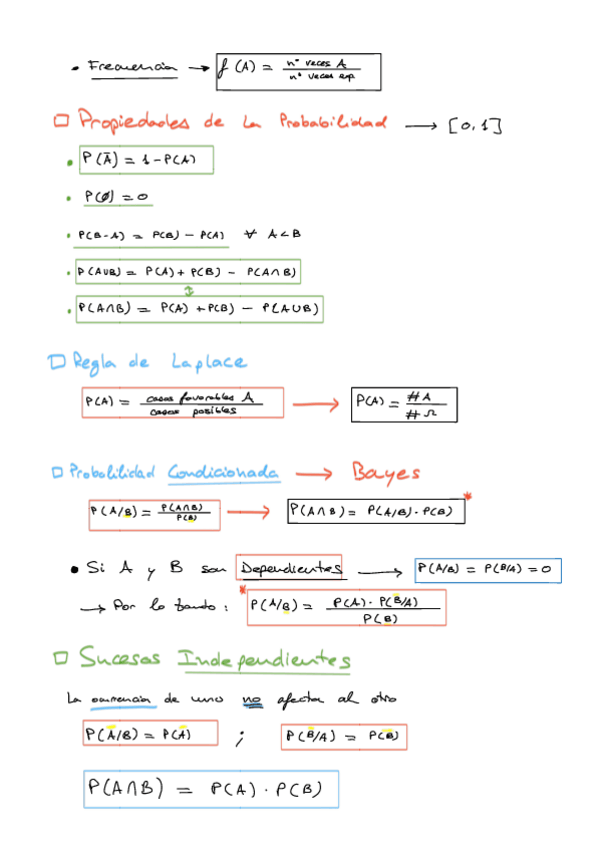 • Frecuencia → f (A) = nº veces A / nº veces exp
□ Propiedades de la Probabilidad → [0,1]
• P(Ā) = 1 - P(A)
• P(∅) = 0
• P(B-A) = P(B) - P(A) ∀ A<B
• P(A∪B) = P(A) + P(B) - P(A∩B)
↕
• P(A∩B) = P(A) + P(B) - P(A∪B)
□ Regla de Laplace
P(A) = casos favorables A / casos posibles → P(A) = #A / #Ω
□ Probabilidad Condicionada → Bayes
P(A/B) = P(A∩B) / P(B) → P(A∩B) = P(A/B) · P(B) *
• Si A y B son Dependientes → P(A/B) = P(B/A) = 0
→ Por lo tanto: * P(A/B) = P(A) · P(B/A) / P(B)
□ Sucesos Independientes
La ocurrencia de uno no afecta al otro
P(A/B) = P(A) ; P(B/A) = P(B)
P(A∩B) = P(A) · P(B)